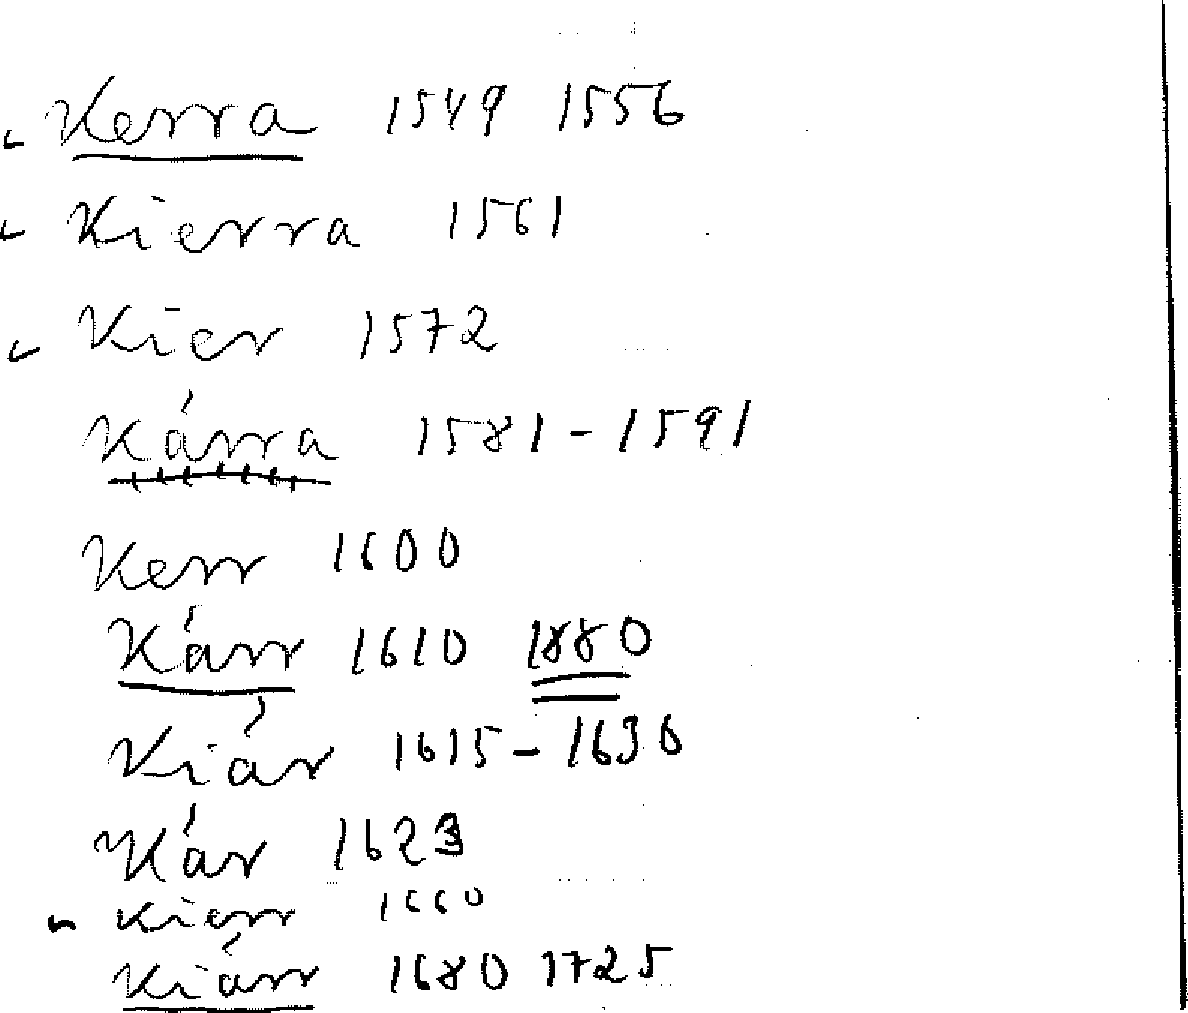 Kerra 1549 1556
Kierra 1561
Kier 1572
Kárra 1581-1591
Kerr 1600
Kárr 1610 1880
Kiár 1615-1630
Kár 1623
Kierr 1660
Kiárr 1680 1725